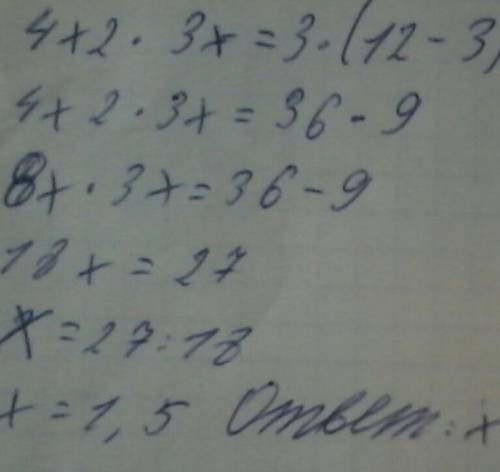 4x2 · 3x = 3 · (12 - 3)
4x 2 · 3x = 36 - 9
8x · 3x = 36 - 9
18x = 27
x = 27 : 18
x = 1,5 Ответ: x